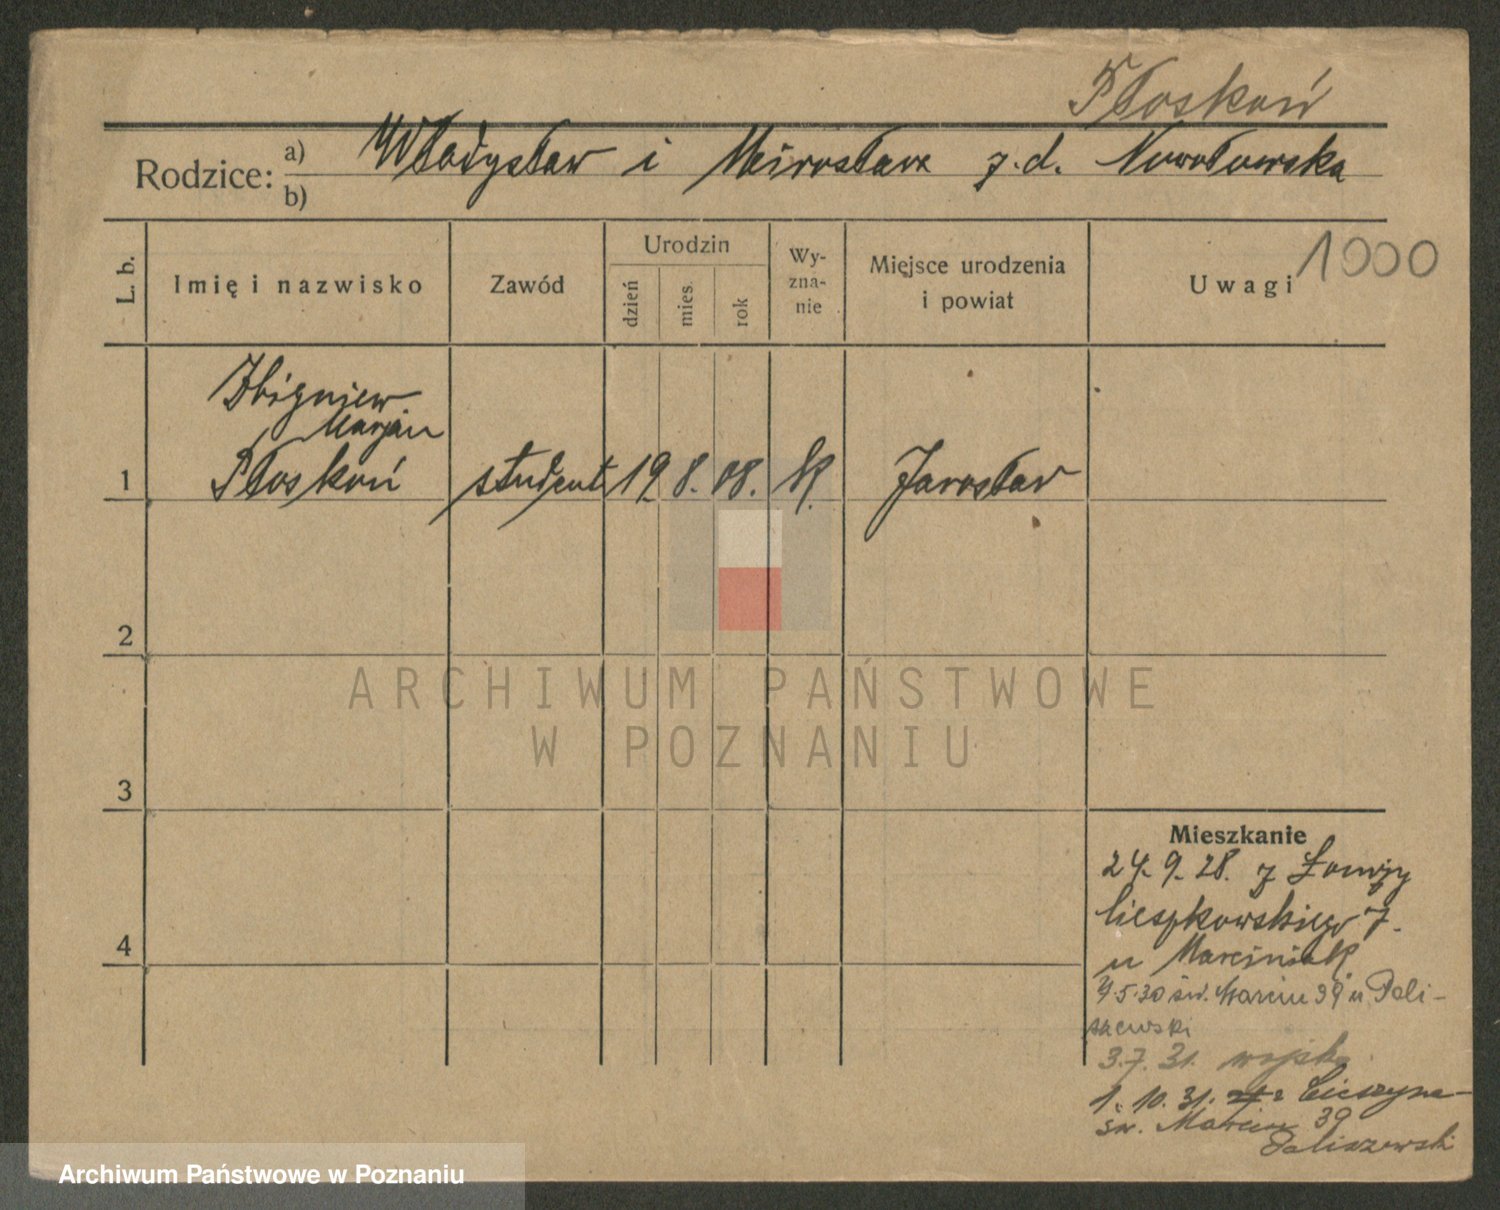 Płoskoń
Rodzice: a) Władysław i Mirosława z.d. Nowotworska
b)
L. b. Imię i nazwisko Zawód Urodzin dzień mies. rok Wy-zna-nie Miejsce urodzenia i powiat Uwagi 1000
Zbigniew
Marjan
1 Płoskoń student 19. 8. 08. K. Jarosław
2
3
4
Mieszkanie
24. 9. 28. z Łomży
Cieszkowskiego 7.
u Marciniak
4.5.30 św. Marcin 39 u Pali-
szewski
3.7.31. wojsko
1. 10. 31. z Cieszyna
św. Marcin 39
Paliszewski
ARCHIWUM PAŃSTWOWE
W POZNANIU
Archiwum Państwowe w Poznaniu